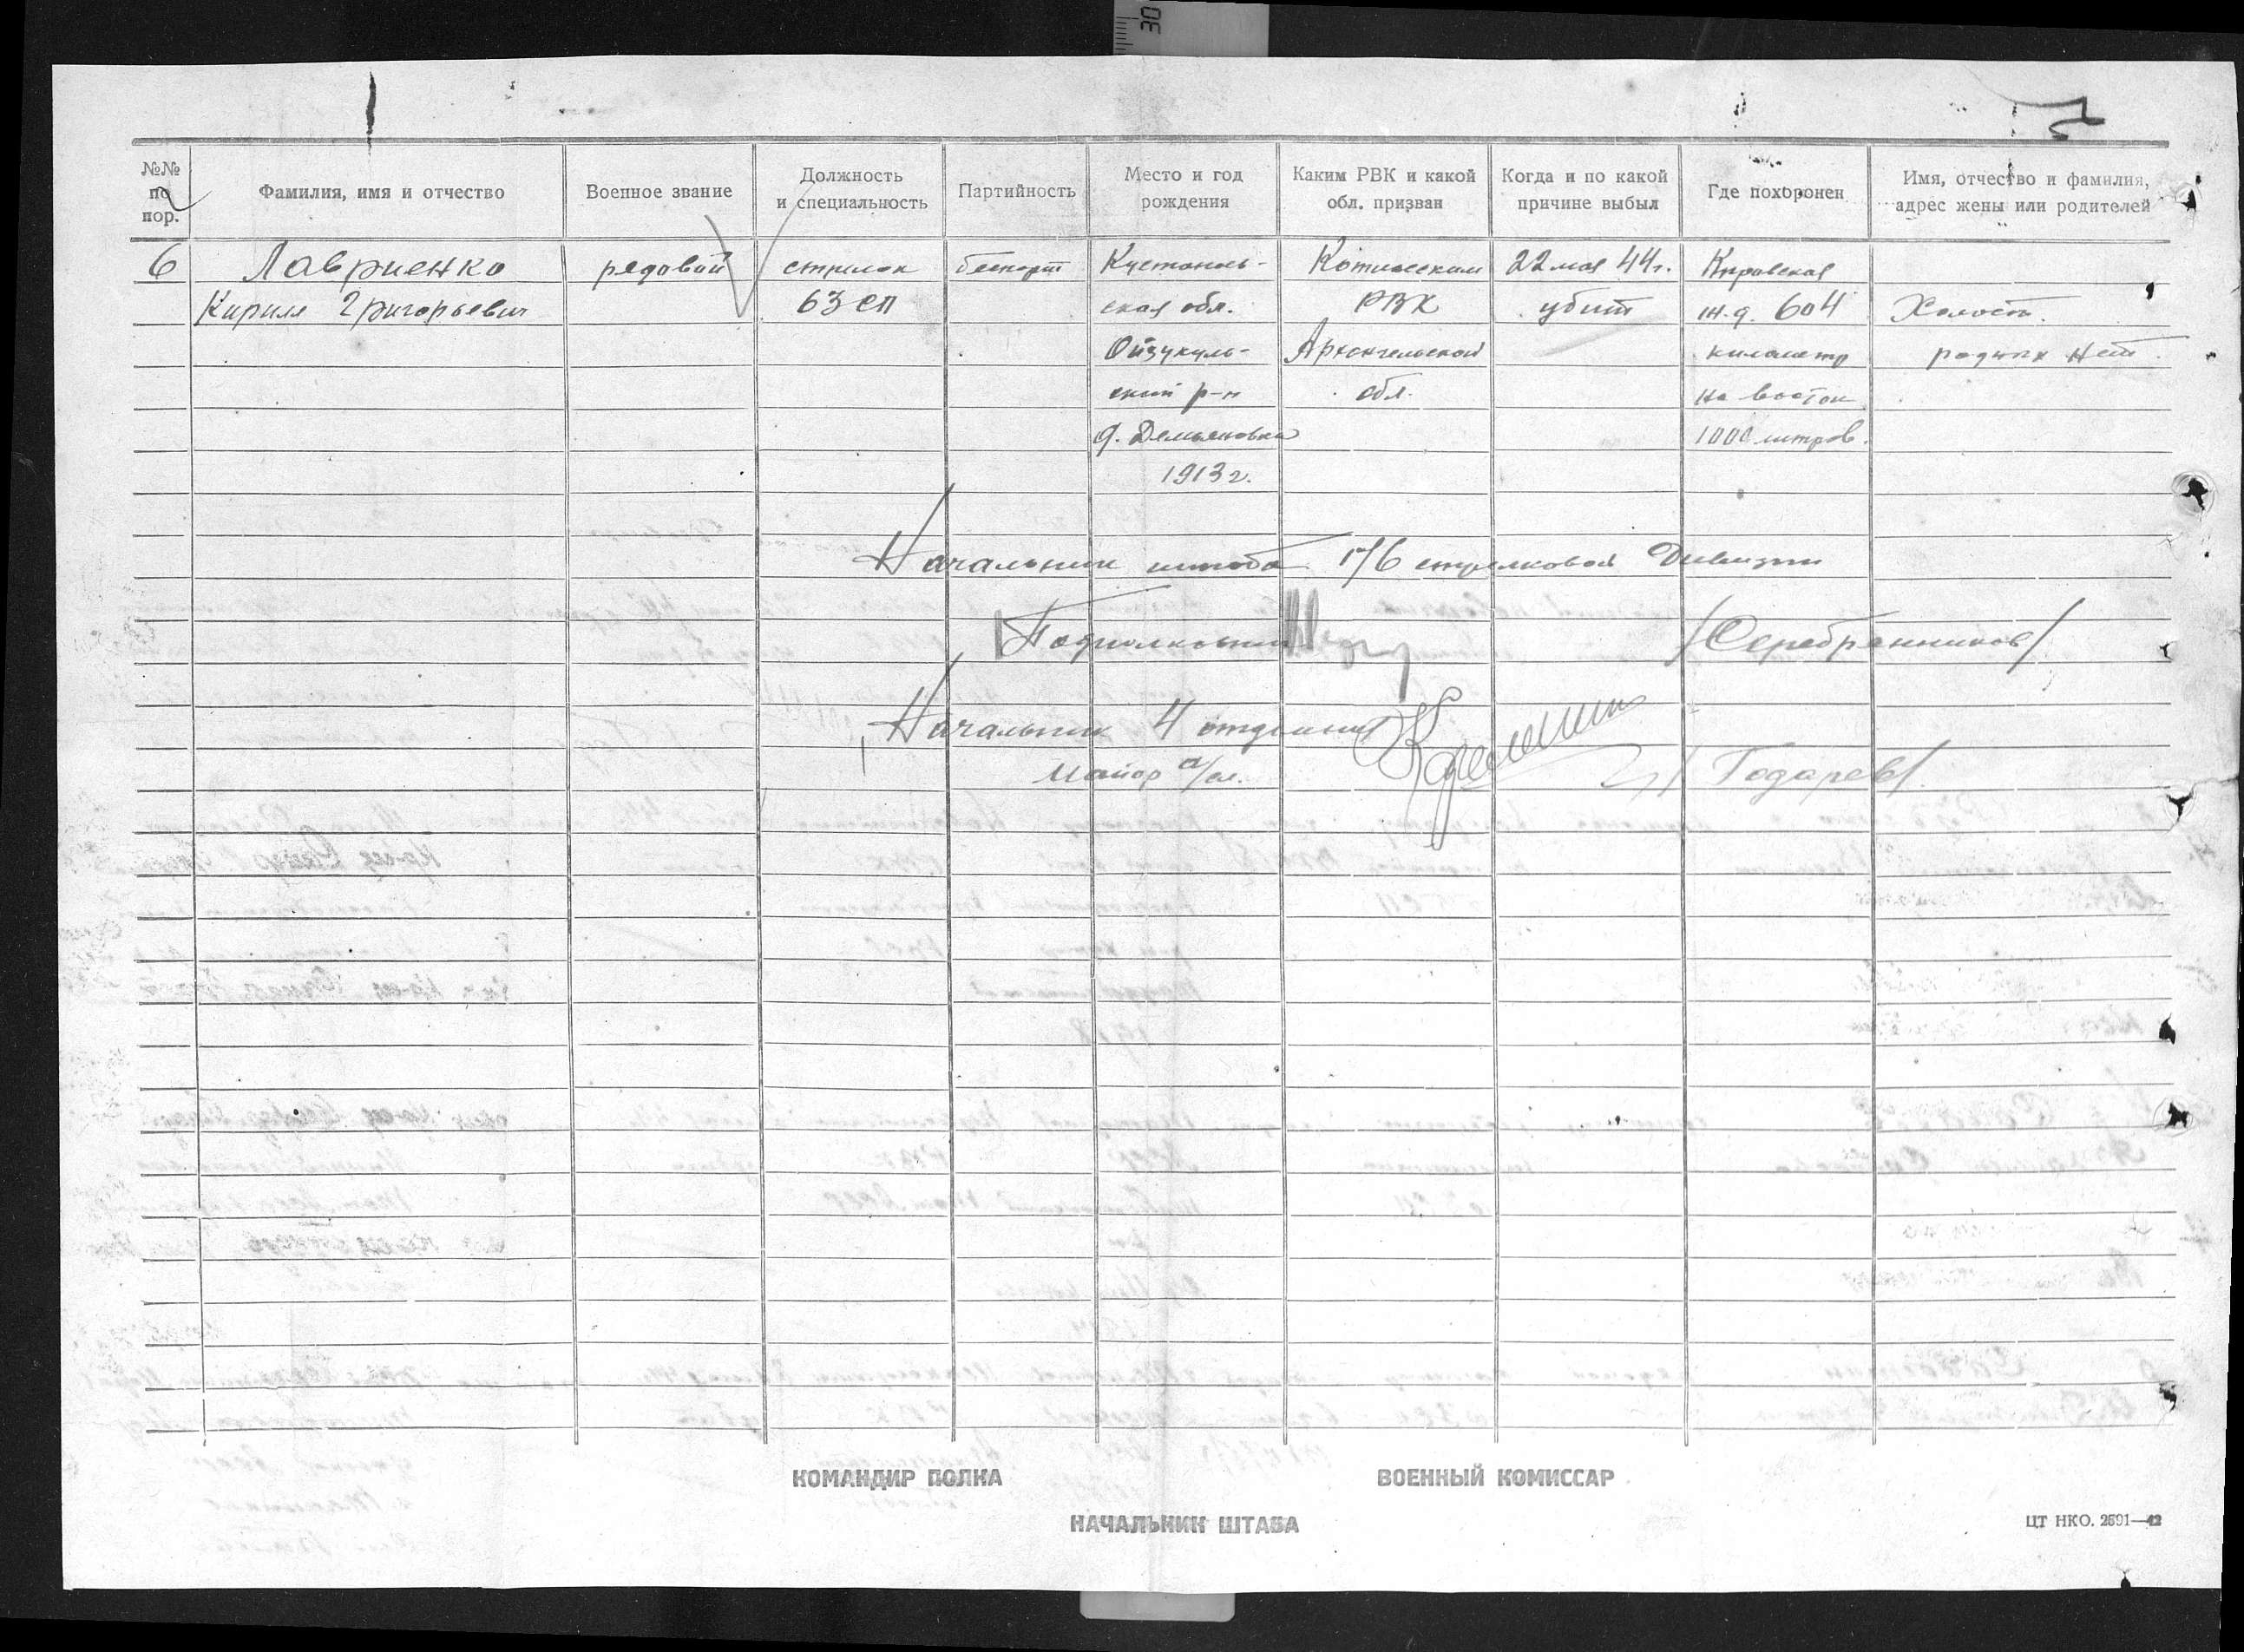 30
№№ по пор.
Фамилия, имя и отчество
Военное звание
Должность и специальность
Партийность
Место и год рождения
Каким РВК и какой обл. призван
Когда и по какой причине выбыл
Где похоронен
Имя, отчество и фамилия, адрес жены или родителей
6 Лавриенко рядовой стрелок беспарт Кустаноль- Котласским 22 мая 44 г. Кировская
Кирилл Григорьевич 63 сп ская обл. РВК убит ж.д. 604 Холост.
Ойзукуль- Архангельской километр родных нет.
ский р-н обл. на восток
д. Демьяновка 1000 метров.
1913 г.
Начальник штаба 176 стрелковой дивизии
Подполковник /Серебренников/
Начальник 4 отделения
майор а/сл. /Годарев/.
КОМАНДИР ПОЛКА ВОЕННЫЙ КОМИССАР
НАЧАЛЬНИК ШТАБА
ЦТ НКО. 2591—42